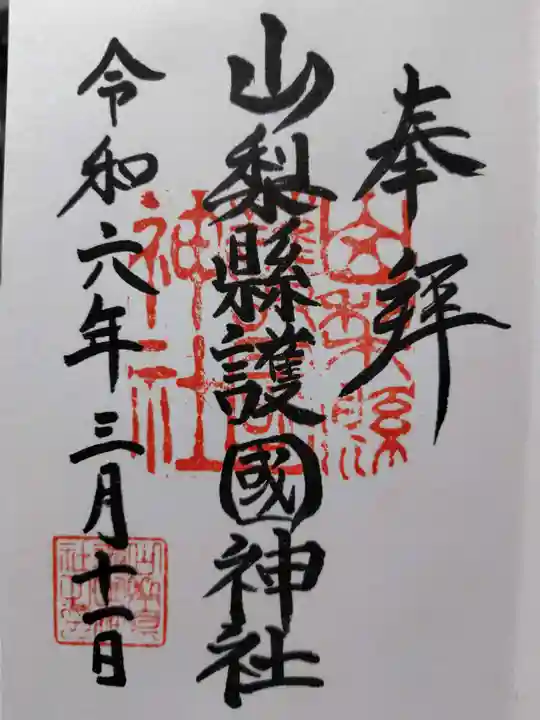 奉拝
山梨縣護國神社
令和六年三月十一日
山梨縣
護國
神社